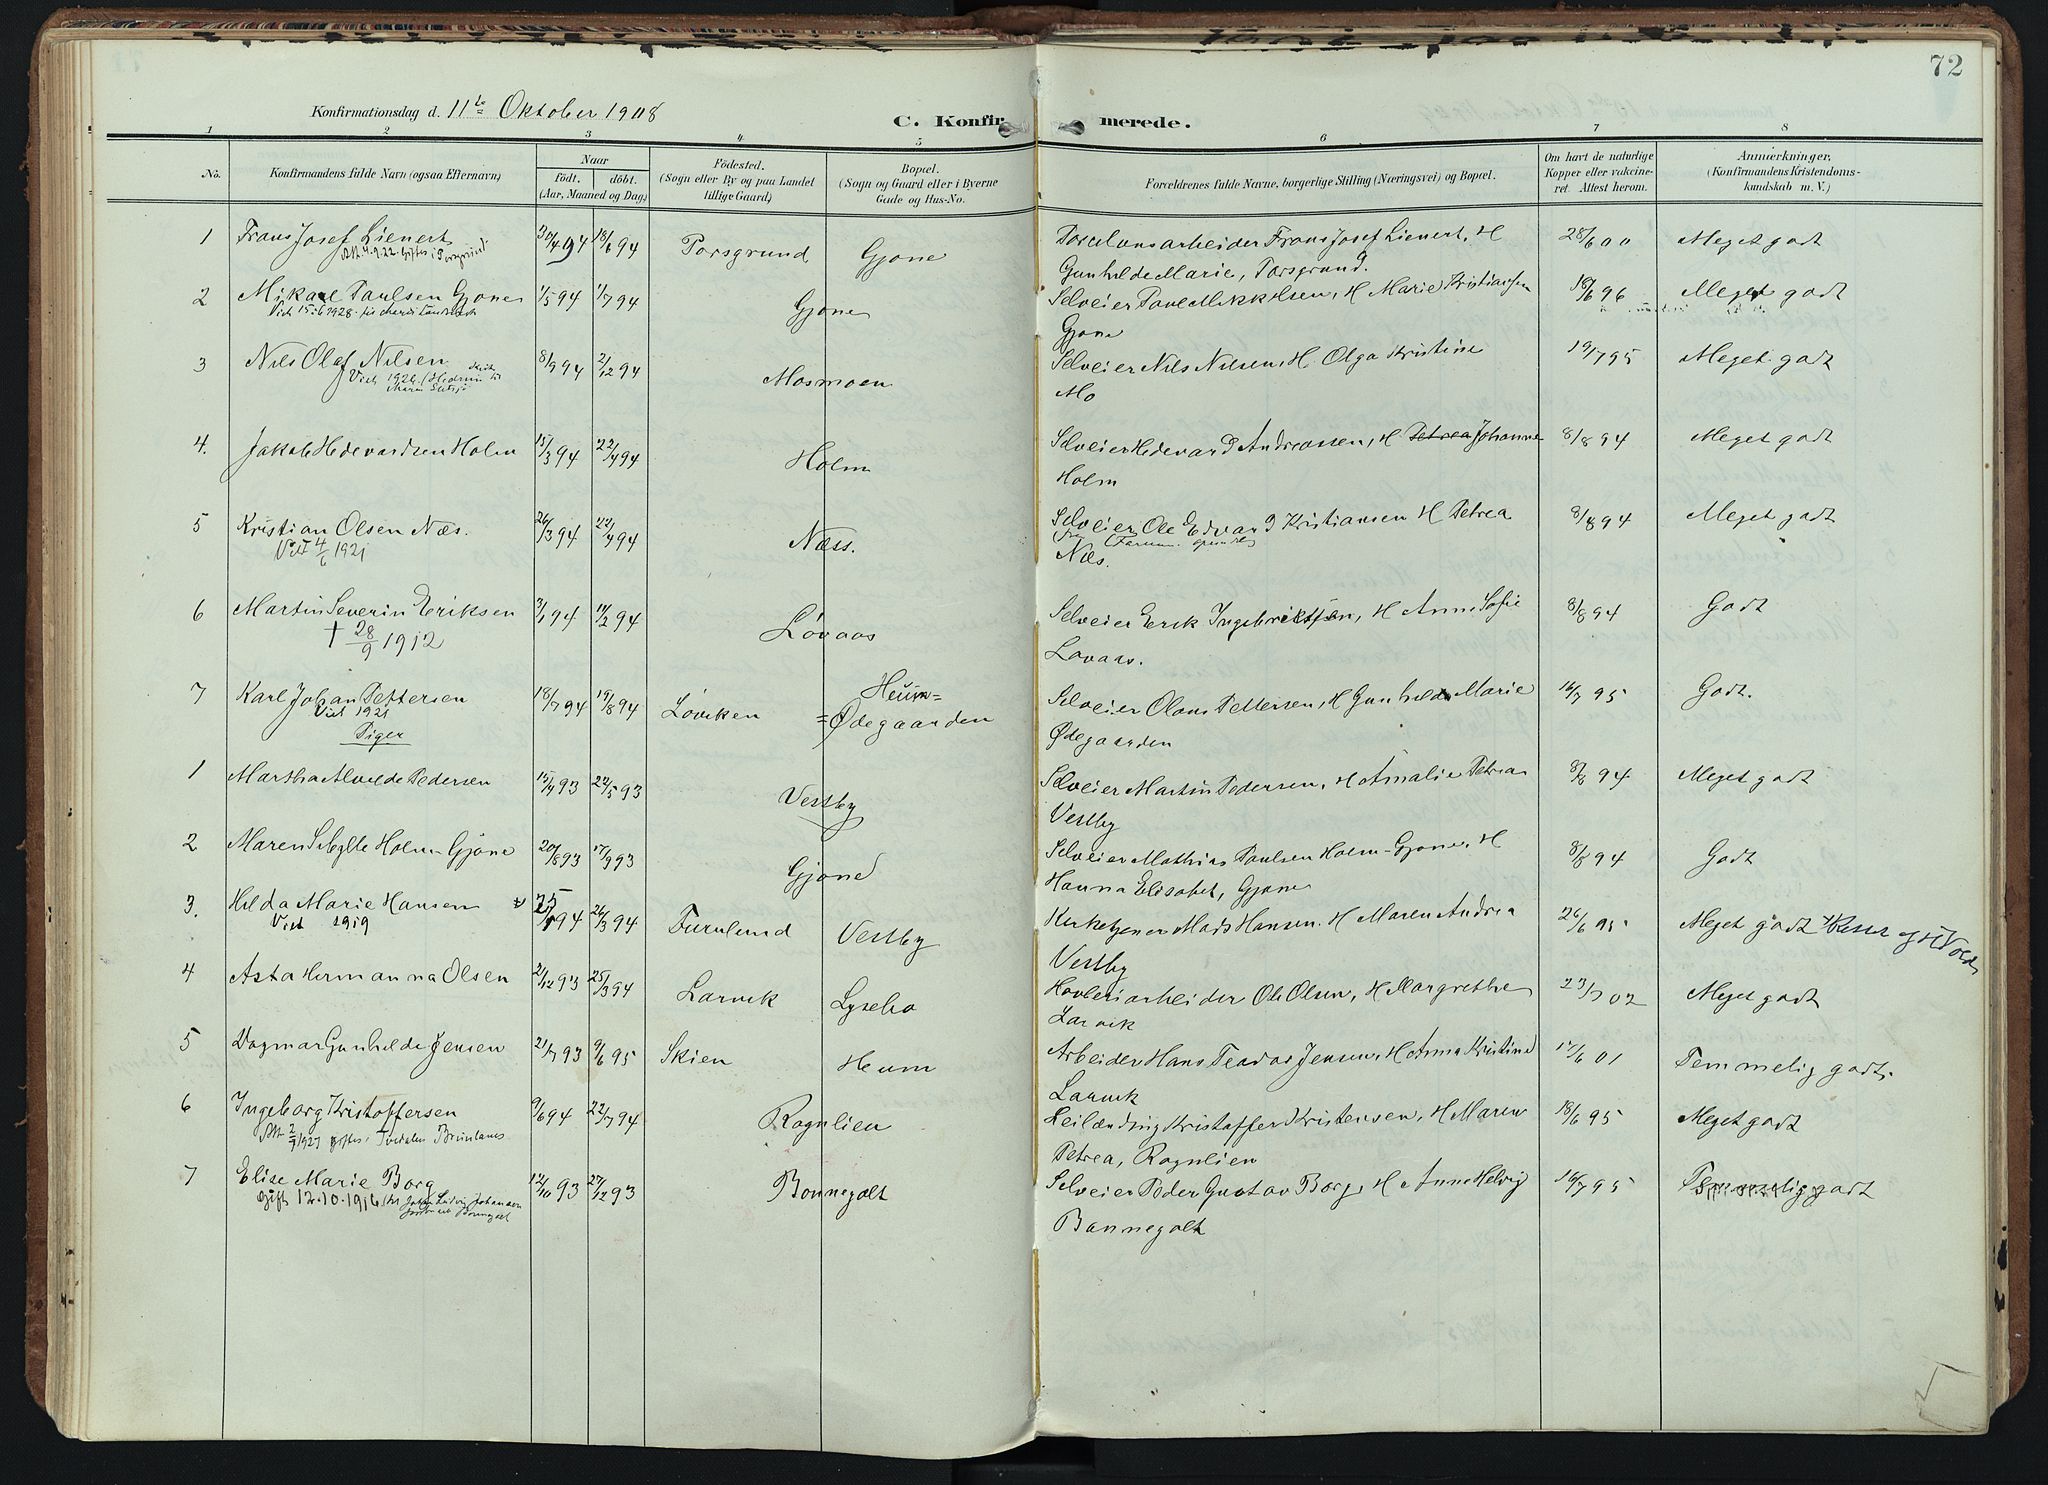 72
Konfirmationsdag d. 11te Oktober 1908
C. Konfirmerede.
1 2 3 4 5 6 7 8
No.
Konfirmandens fulde Navn (ogsaa Efternavn)
Naar
födt. döbt.
(Aar, Maaned og Dag)
Födested.
(Sogn eller By og paa Landet
tillige Gaard)
Bopæl.
(Sogn og Gaard eller i Byerne
Gade og Hus-No.
Forældrenes fulde Navne, borgerlige Stilling (Næringsvei) og Bopæl.
Om havt de naturlige
Kopper eller vakcine-
ret. Attest herom.
Anmærkninger.
(Konfirmandens Kristendoms-
kundskab m. V.)
1 Frans Josef Lienert 30/4 94 18/6 94 Porsgrund Gjone Porcelansarbeider Frans Josef Lienert, H 28/6 00 Meget godt
Att. 4.9.22. Giftes i Porsgrund
Gunhilde Marie, Porsgrund.
2 Mikael Paulsen Gjone 1/5 94 1/7 94 Gjone Selveier Paul Mikkelsen, H Marie Kristiansen 18/6 96 Meget godt
Viet 15.6 1928
Gjone
3 Nils Olaf Nilsen 8/9 94 2/12 94 Mosmoen Selveier Nils Nilsen, H Olga Kristine 19/7 95 Meget godt
Viet 1926 i Hedrum til
Mo
4. Jakob Hedevardsen Holm 15/3 94 22/4 94 Holm Selveier Hedevard Andreassen, H Petrea Johanne 8/8 94 Meget godt
Holm
5 Kristian Olsen Næs. 26/3 94 22/4 94 Næss. Selveier Ole Edvard Kristiansen H Petrea 8/8 94 Meget godt
Viet 4/6 1921
Næs.
6 Martin Severin Eriksen 3/1 94 11/2 94 Lövaas Selveier Erik Ingebriktsen, H Anne Sofie 8/8 94 Godt
† 28/9 1912
Lovaas.
7 Karl Johan Pettersen 18/7 94 19/8 94 Löviken Heum=
=Ødegaarden Selveier Olaus Pettersen, H Gunhilda Marie 16/7 95 Godt.
Viet 1921
Ødegaarden
Piger
1 Martha Alvilde Pedersen 15/4 93 22/5 93 Vestby Selveier Martin Pedersen, H Amalie Petrea 8/8 94 Meget godt
Vestby
2 Maren Sibylle Holm Gjone 20/8 93 17/9 93 Gjone Selveier Mathias Paulsen Holm-Gjone, H 8/8 94 Godt
Hanna Elisabet, Gjone
3. Hilda Marie Hansen 94 26/3 94 Furulund Vestby Kirketjener Mads Hansen. H Maren Andrea 26/6 95 Meget godt
Viet 1919
Vestby
4 Asta Hermanna Olsen 21/12 93 25/3 94 Larvik Lysebo Høvleriarbeider Ole Olsen, H Margrethe 23/7 02 Meget godt
Larvik
5 Dagmar Gunhilde Jensen 21/7 93 9/6 95 Skien Heum Arbeider Hans Teodor Jensen, H Anna Kristine 17/6 01 Temmelig godt.
Larvik
6 Ingeborg Kristoffersen 9/6 94 22/7 94 Rognlien Leilænding Kristoffer Kristensen, H Maren 18/6 95 Meget godt
Att 2/7 1927 giftes i Tvedalen Brunlanes
Petrea, Rognlien
7 Elise Marie Borg 12/10 93 27/12 93 Bonnegolt Selveier Peder Gustav Borg, H Anne Helvig 16/7 95 Temmelig godt
Gift 12.10.1916 Ludvig Johansen
Bonnegolt
Bonnegolt